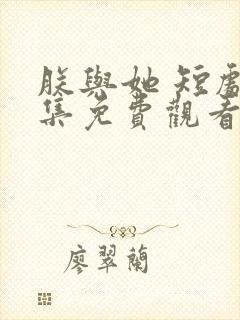 朕與她 短處
集免費觀看
廖翠蘭